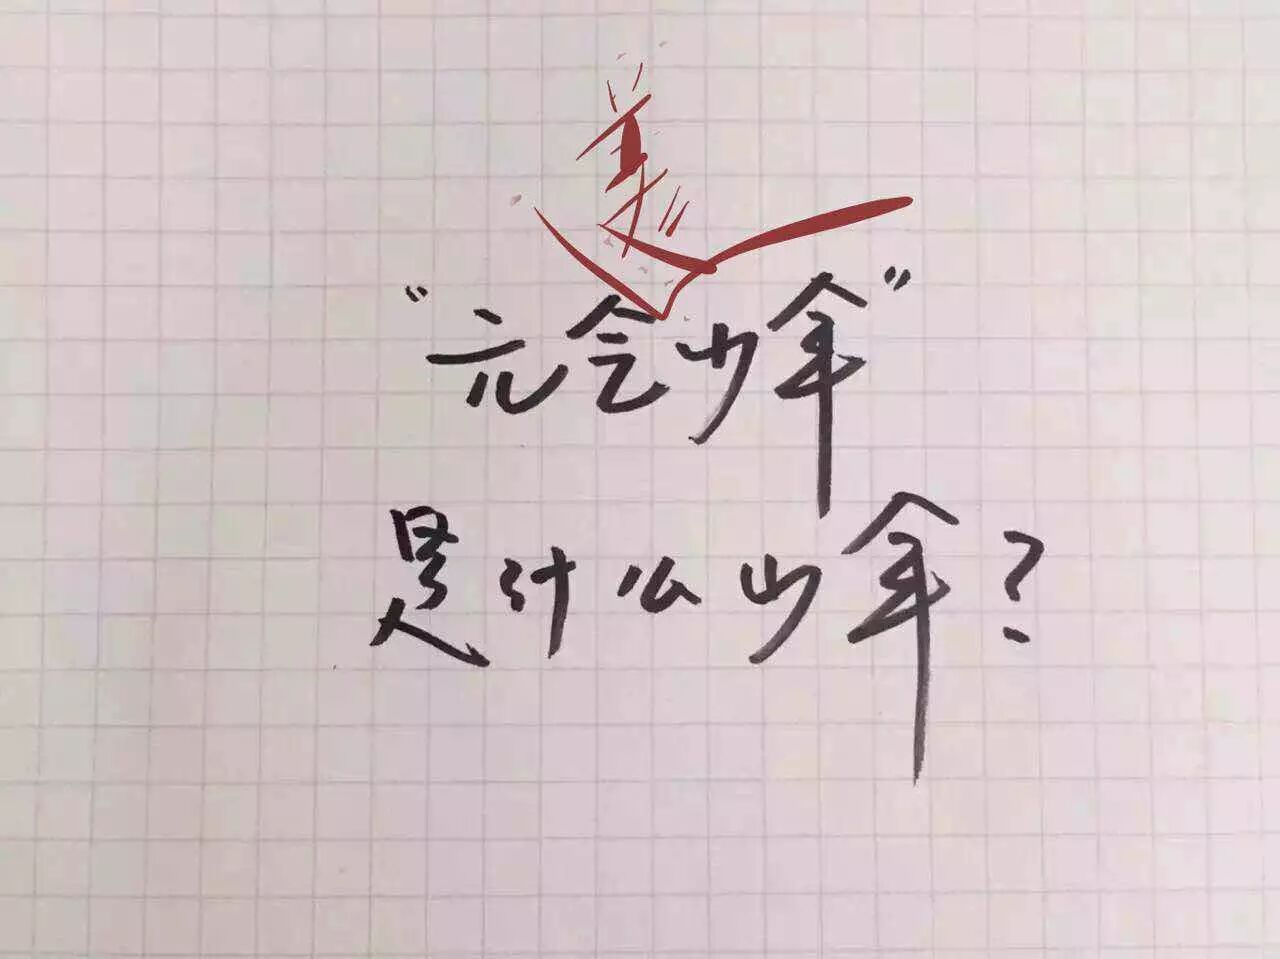 美
“元气少年”
是什么少年？